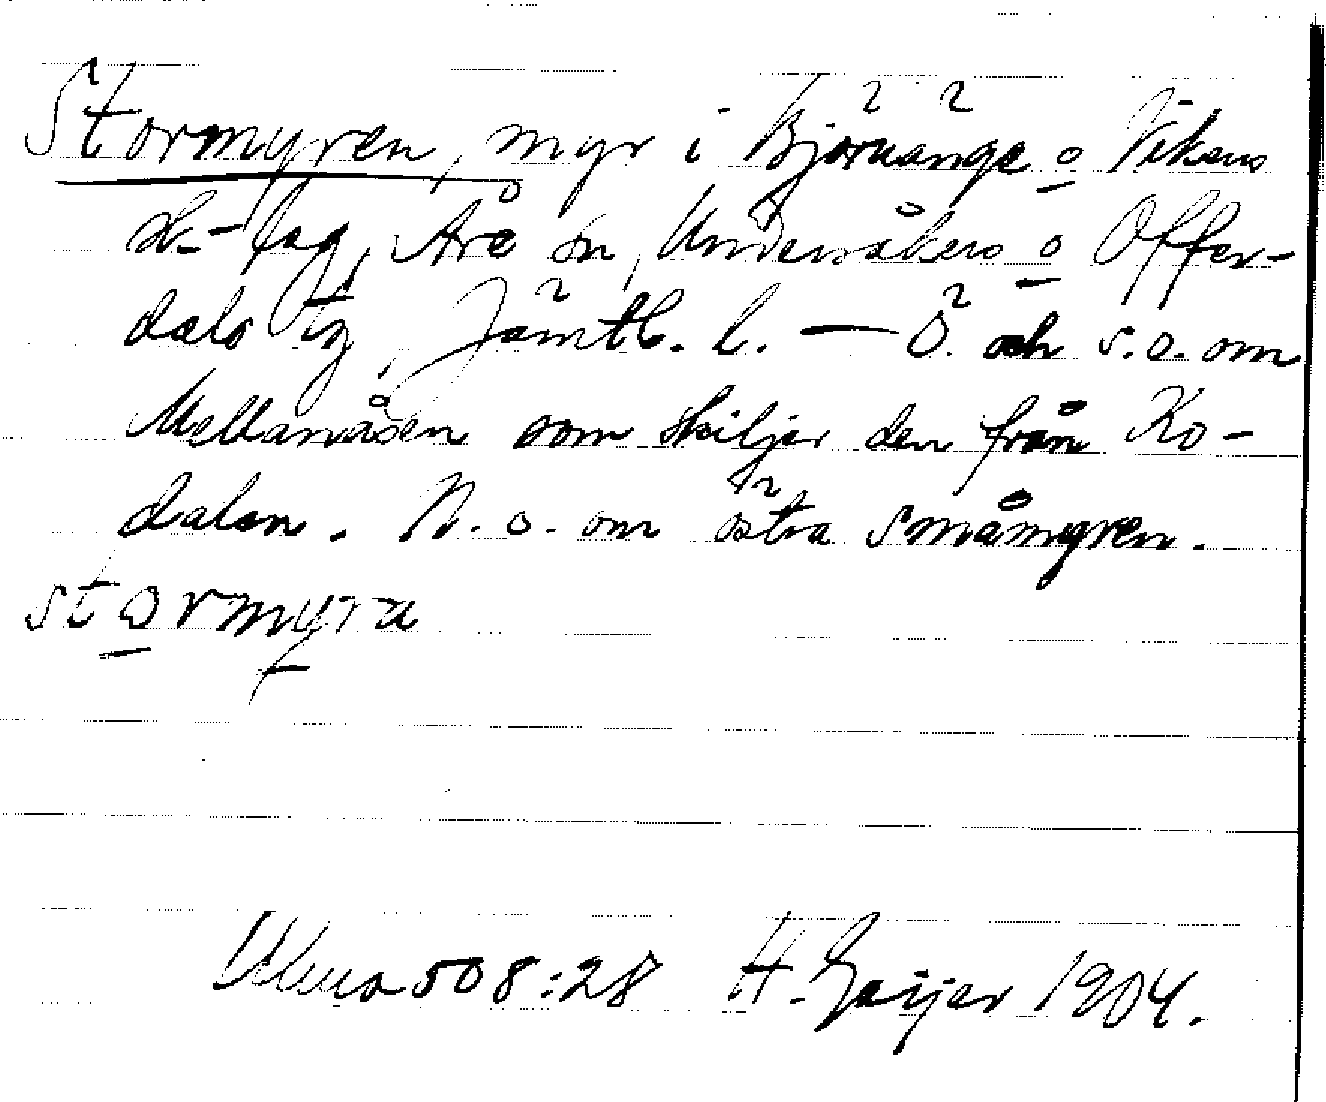 Stormyren, myr i Björnänge o Vikens
sk.-lag, Åre sn, Undersåkers o Offer-
dals tg, Jämtl. l. — Ö. och s.o. om
Mellanåsen som skiljer den från Ko-
dalen. N.o. om östra Småmyren.
stormyra
508:28 H. Geijer 1904.